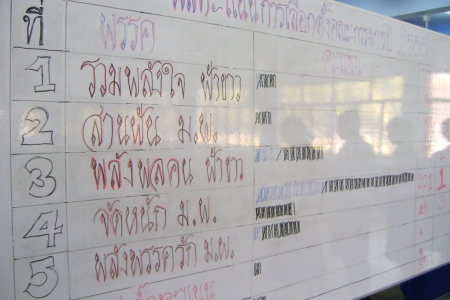 ผลคะแนนการเลือกตั้งคณะกรรมการ
ที่ พรรค คะแนน
1 รวมพลังใจ ฟ้าขาว
2 สานฝัน ม.พ.
3 พลังพลคน ฟ้าขาว
4 จัดหนัก ม.พ.
5 พลังพรรครัก ม.พ.